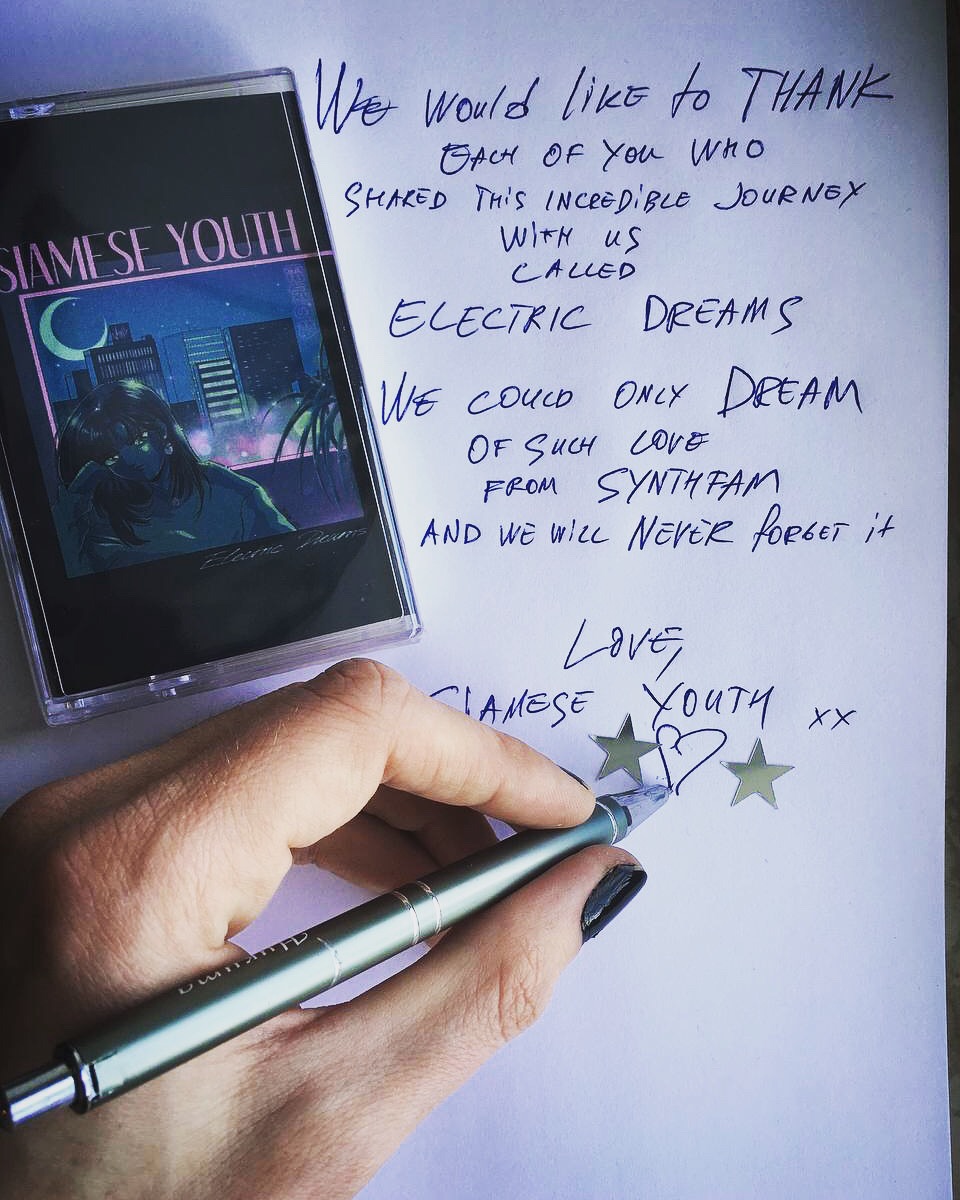 SIAMESE YOUTH
Electric Dreams
We would like to THANK
EACH OF YOU WHO
SHARED THIS INCREDIBLE JOURNEY
WITH US
CALLED
ELECTRIC DREAMS
WE COULD ONLY DREAM
OF SUCH LOVE
FROM SYNTHFAM
AND WE WILL NEVER forget it
LOVE,
SIAMESE YOUTH xx